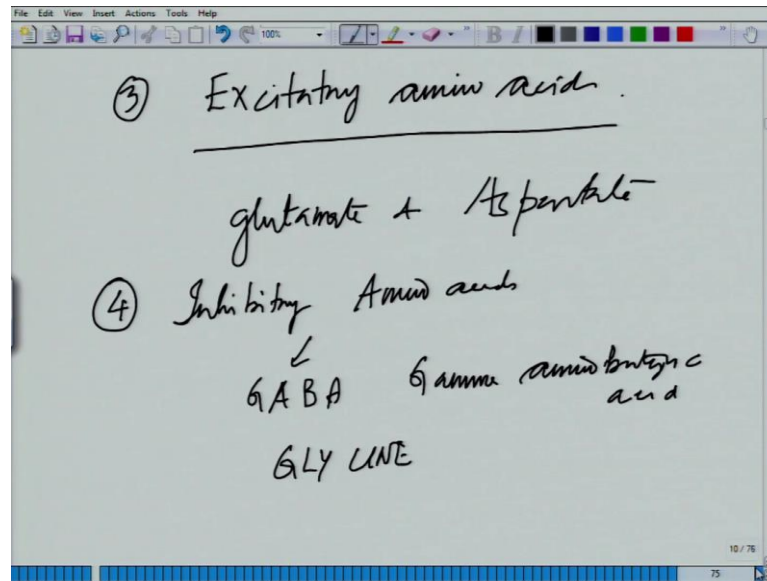 File Edit View Insert Actions Tools Help
100%
B I
③ Excitatory amino acids.
glutamate & Aspartate
④ Inhibitory Amino acids
GABA Gamma aminobutyric
acid
GLYCINE
10 / 76
75